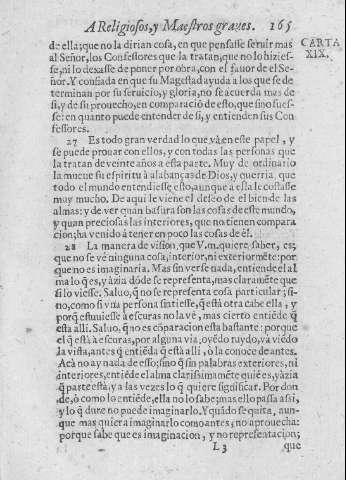 A Religiosos, y Maestros graues. 165
de ella; que no la dirian cosa, en que pensasse seruir mas
al Señor, los Confessores que la tratan, que no lo hizies-
se, ni lo dexasse de poner por obra, con el fauor de el Se-
ñor. Y confiada en que su Magestad ayuda a los que se de
terminan por su seruicio, y gloria, no se acuerda mas de
si, y de su prouecho, en comparació de esto, que sino fues-
se: en quanto puede entender de si, y entienden sus Con
fessores.
CARTA
XIX.
27 Es todo gran verdad lo que và en este papel, y
se puede prouar con ellos, y con todas las personas que
la tratan de veinte años a esta parte. Muy de ordinario
la mueue su espiritu à alabanças de Dios, y querria que
todo el mundo entendiesse esto, aunque a ella le costasse
muy mucho. De aqui le viene el deseo de el bien de las
almas: y de ver quan basura son las cosas de este mundo,
y quan preciosas las interiores, que no tienen compara
cion; ha venido à tener en poco las cosas de èl.
28 La manera de vision, que V.m. quiere saber, es;
que no se vè ninguna cosa, interior, ni exteriorméte: por
que no es imaginaria. Mas sin verse nada, entiende el al
ma lo q̃ es, y àzia dóde se representa, mas claraméte que
si lo viesse. Saluo, q̃ no se representa cosa particular; si-
no, como si vna persona sintiesse, q̃ està otra cabe ella, y
porq̃ estuuiesse à escuras no la vè, mas cierto entiéde q̃
esta alli. Saluo, q̃ no es cõparacion esta bastante: porque
el q̃ està à escuras, por alguna via, oyédo ruydo, và viédo
la vista, antes q̃ entiéda q̃ està alli, ò la conoce de antes.
Acà no ay nada de esso; sino q̃ sin palabras exteriores, ni
interiores, entiéde el alma clarissimaméte quiè es, y àzia
q̃ parte està, y a las vezes lo q̃ quiere significar. Por don
de, ò como lo entiéde, ella no lo sabe; mas ello passa assi,
y lo q̃ dure no puede imaginarlo. Y quádo se quita, aun-
que mas quiera imaginarlo como antes; no aprouecha:
porque sabe que es imaginacion, y no representacion;
L 3 que